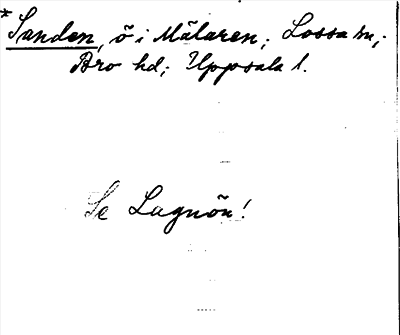 *Sanden, ö i Mälaren; Lossa sn;
Bro hd; Uppsala l.
Se Lagnön!